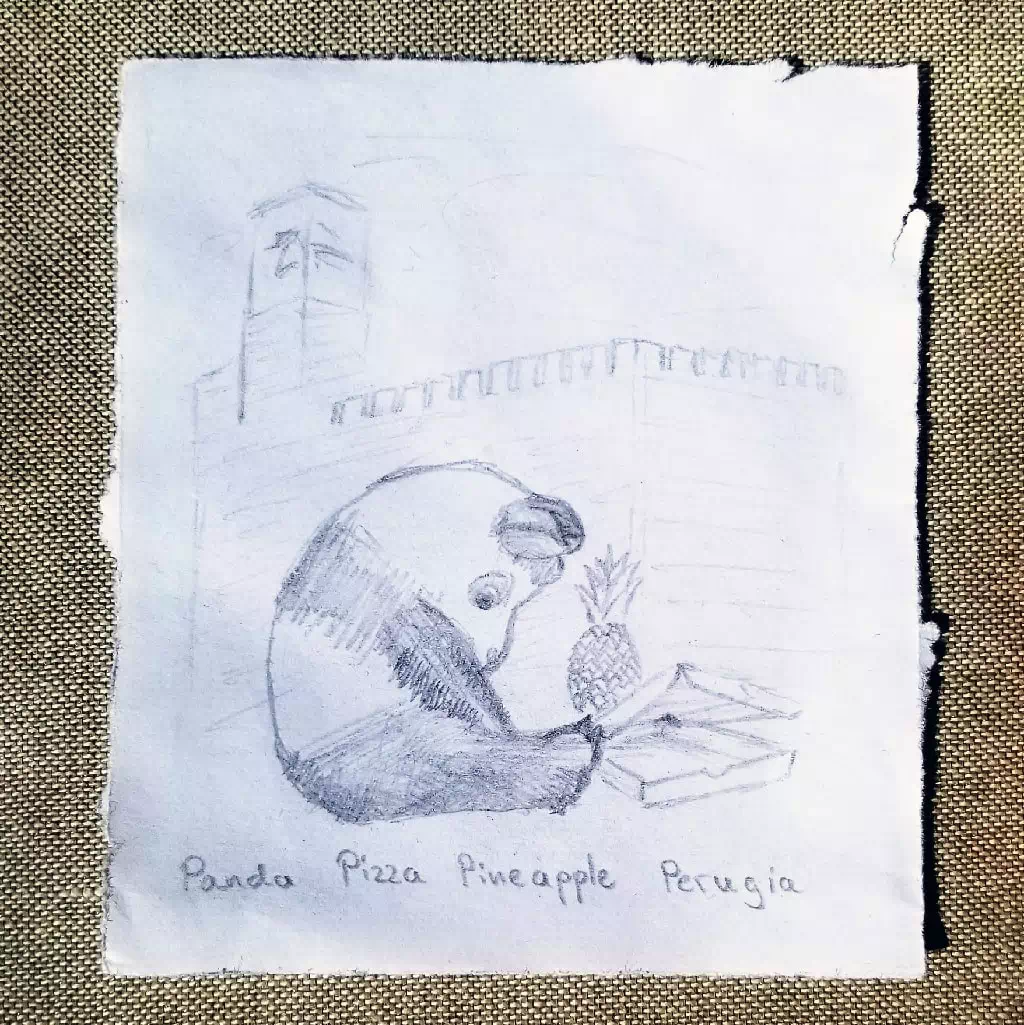 Panda Pizza Pineapple Perugia